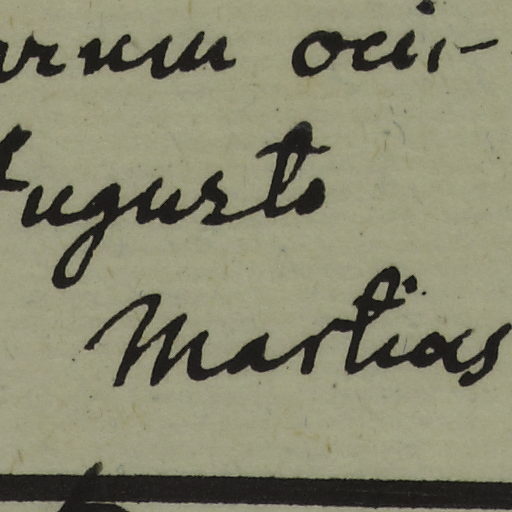 arum ocu-
Augusto
Martias